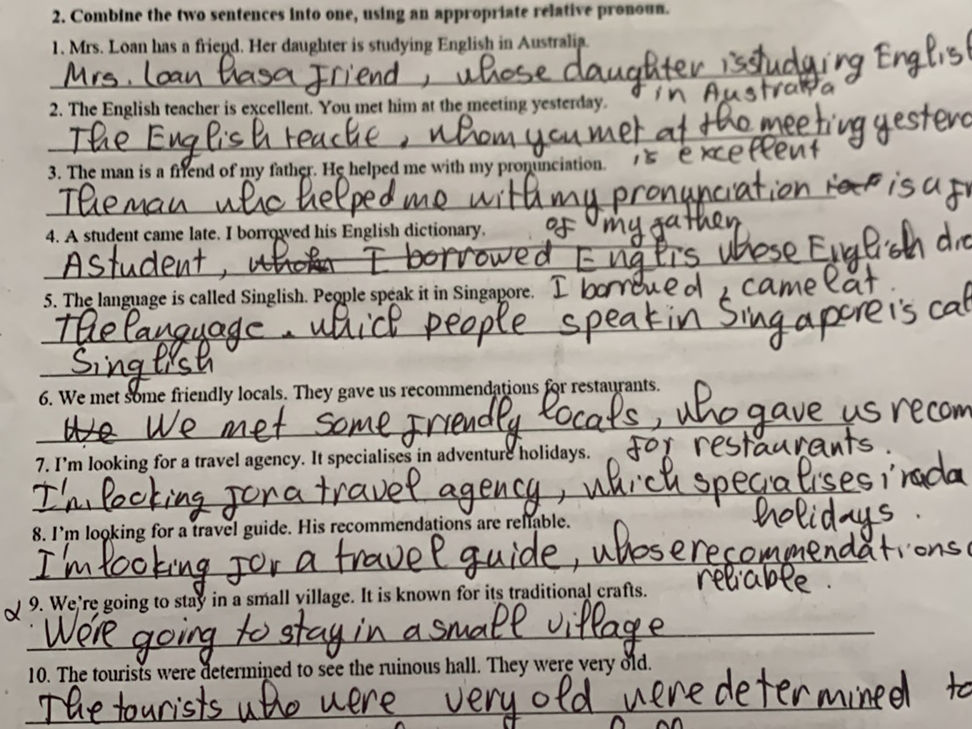 2. Combine the two sentences into one, using an appropriate relative pronoun.
1. Mrs. Loan has a friend. Her daughter is studying English in Australia.
Mrs. Loan has a friend, whose daughter is studying Englis
in Australia
2. The English teacher is excellent. You met him at the meeting yesterday.
The English teache, whom you met at the meeting yester
is excellent
3. The man is a friend of my father. He helped me with my pronunciation.
The man who helped me with my pronunciation is a fr
of my father
4. A student came late. I borrowed his English dictionary.
A student, whom I borrowed Englis whose English dic
I borrowed, came lat.
5. The language is called Singlish. People speak it in Singapore.
The language. which people speak in Singapore is cal
Singlish
6. We met some friendly locals. They gave us recommendations for restaurants.
We We met some friendly locals, who gave us recom
for restaurants.
7. I'm looking for a travel agency. It specialises in adventure holidays.
I'm looking for a travel agency, which specialises
holidays.
8. I'm looking for a travel guide. His recommendations are reliable.
I'm looking for a travel guide, whose recommendations
reliable.
9. We're going to stay in a small village. It is known for its traditional crafts.
We're going to stay in a small village
10. The tourists were determined to see the ruinous hall. They were very old.
The tourists who were very old were determined to